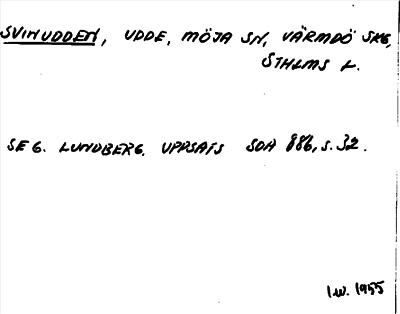 SVINUDDEN, UDDE, MÖJA SN, VÄRMDÖ SKG,
STHLMS L.
SE G. LUNDBERG, UPPSATS SOA 886, S. 32.
I.W. 1955